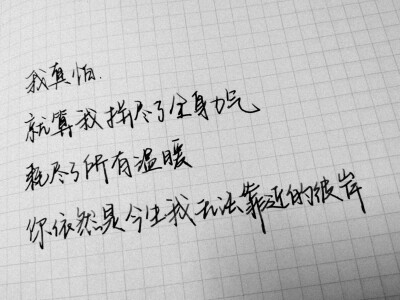 我真怕.
就算我拼尽了全身力气
耗尽了所有温暖
你依然是今生我无法靠近的彼岸